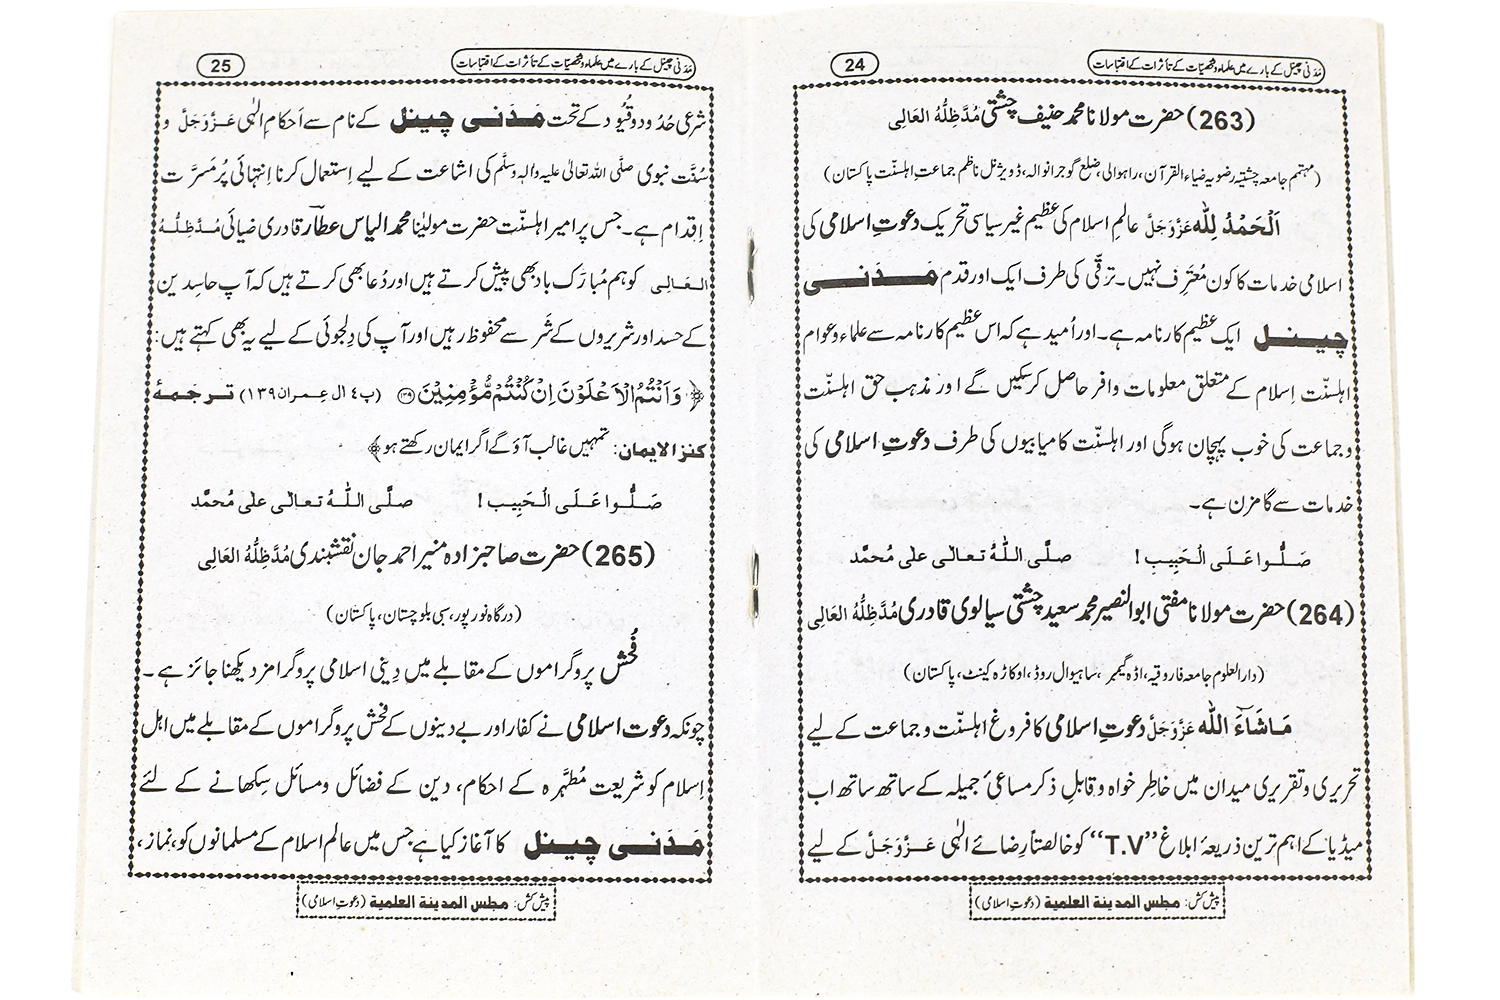 مَدَنی چینل کے بارے میں علماء و شخصیّات کے تأثرات کے اقتباسات
24
(263) حضرت مولانا محمد حنیف چشتی مُدَّظِلُّہُ العَالِی
(مہتمم جامعہ چشتیہ رضویہ ضیاء القرآن، راہوالی ضلع گوجرانوالہ، ڈویژنل ناظم جماعتِ اہلسنّت پاکستان)
اَلْحَمْدُ لِلّٰہ عَزَّوَجَلَّ عالمِ اسلام کی عظیم غیر سیاسی تحریک دعوتِ اسلامی کی
اسلامی خدمات کا کون مُعترِف نہیں۔ ترقّی کی طرف ایک اور قدم مَدَنی
چینل ایک عظیم کارنامہ ہے۔ اور اُمید ہے کہ اس عظیم کارنامہ سے علماء و عوام
اہلسنّت اِسلام کے متعلق معلومات وافر حاصل کرسکیں گے اور مذہب حق اہلسنّت
و جماعت کی خوب پہچان ہوگی اور اہلسنّت کامیابیوں کی طرف دعوتِ اسلامی کی
خدمات سے گامزن ہے۔
صَلُّوا عَلَی الْحَبِیب! صلَّی اللّٰہُ تعالٰی علٰی محمَّد
(264) حضرت مولانا مفتی ابوالنصیر محمد سعید چشتی سیالوی قادری مُدَّظِلُّہُ العَالِی
(دارالعلوم جامعہ فاروقیہ، اڈہ گیمبر، ساہیوال روڈ، اوکاڑہ کینٹ، پاکستان)
مَاشَآءَ اللّٰہ عَزَّوَجَلَّ دعوتِ اسلامی کا فروغِ اہلسنّت و جماعت کے لیے
تحریری و تقریری میدان میں خاطِر خواہ و قابلِ ذکر مساعیٔ جمیلہ کے ساتھ ساتھ اب
میڈیا کے اہم ترین ذریعۂ ابلاغ ”T.V“ کو خالصتاً رِضائے الٰہی عَزَّوَجَلَّ کے لیے
پیش کش: مجلس المدینۃ العلمیۃ (دعوتِ اسلامی)
مَدَنی چینل کے بارے میں علماء و شخصیّات کے تأثرات کے اقتباسات
25
شرعی حُدُود و قُیُود کے تحت مَدَنی چینل کے نام سے اَحکامِ الٰہی عَزَّوَجَلَّ و
سُنّت نبوی صلَّی اللہ تعالیٰ علیہ والہٖ وسلَّم کی اشاعت کے لیے اِستعمال کرنا اِنتہائی پُر مَسرّت
اِقدام ہے۔ جس پر امیرِ اہلسنّت حضرت مولیٰنا محمد الیاس عطار قادری ضیائی مُدَّظِلُّہُ
العَالِی کو ہم مُبارَک باد بھی پیش کرتے ہیں اور دُعا بھی کرتے ہیں کہ آپ حاسِدین
کے حسد اور شریروں کے شَر سے محفوظ رہیں اور آپ کی دِلجوئی کے لیے یہ بھی کہتے ہیں:
﴿وَاَنْتُمُ الْاَعْلَوْنَ اِنْ كُنْتُمْ مُّؤْمِنِيْنَ ۝۱۳۹ (پ٤ اٰل عمران ١٣٩) ترجمۂ
کنز الایمان: تمہیں غالب آؤ گے اگر ایمان رکھتے ہو﴾
صَلُّوا عَلَی الْحَبِیب! صلَّی اللّٰہُ تعالٰی علٰی مُحمَّد
(265) حضرت صاحبزادہ منیر احمد جان نقشبندی مُدَّظِلُّہُ العَالِی
(درگاہ نور پور، سبی بلوچستان، پاکستان)
فُحش پروگراموں کے مقابلے میں دِینی اسلامی پروگرامز دیکھنا جائز ہے۔
چونکہ دعوتِ اسلامی نے کفار اور بے دینوں کے فحش پروگراموں کے مقابلے میں اہل
اِسلام کو شریعت مُطہَّرہ کے احکام، دین کے فضائل و مسائل سِکھانے کے لئے
مَدَنی چینل کا آغاز کیا ہے جس میں عالم اسلام کے مسلمانوں کو، نماز،
پیش کش: مجلس المدینۃ العلمیۃ (دعوتِ اسلامی)